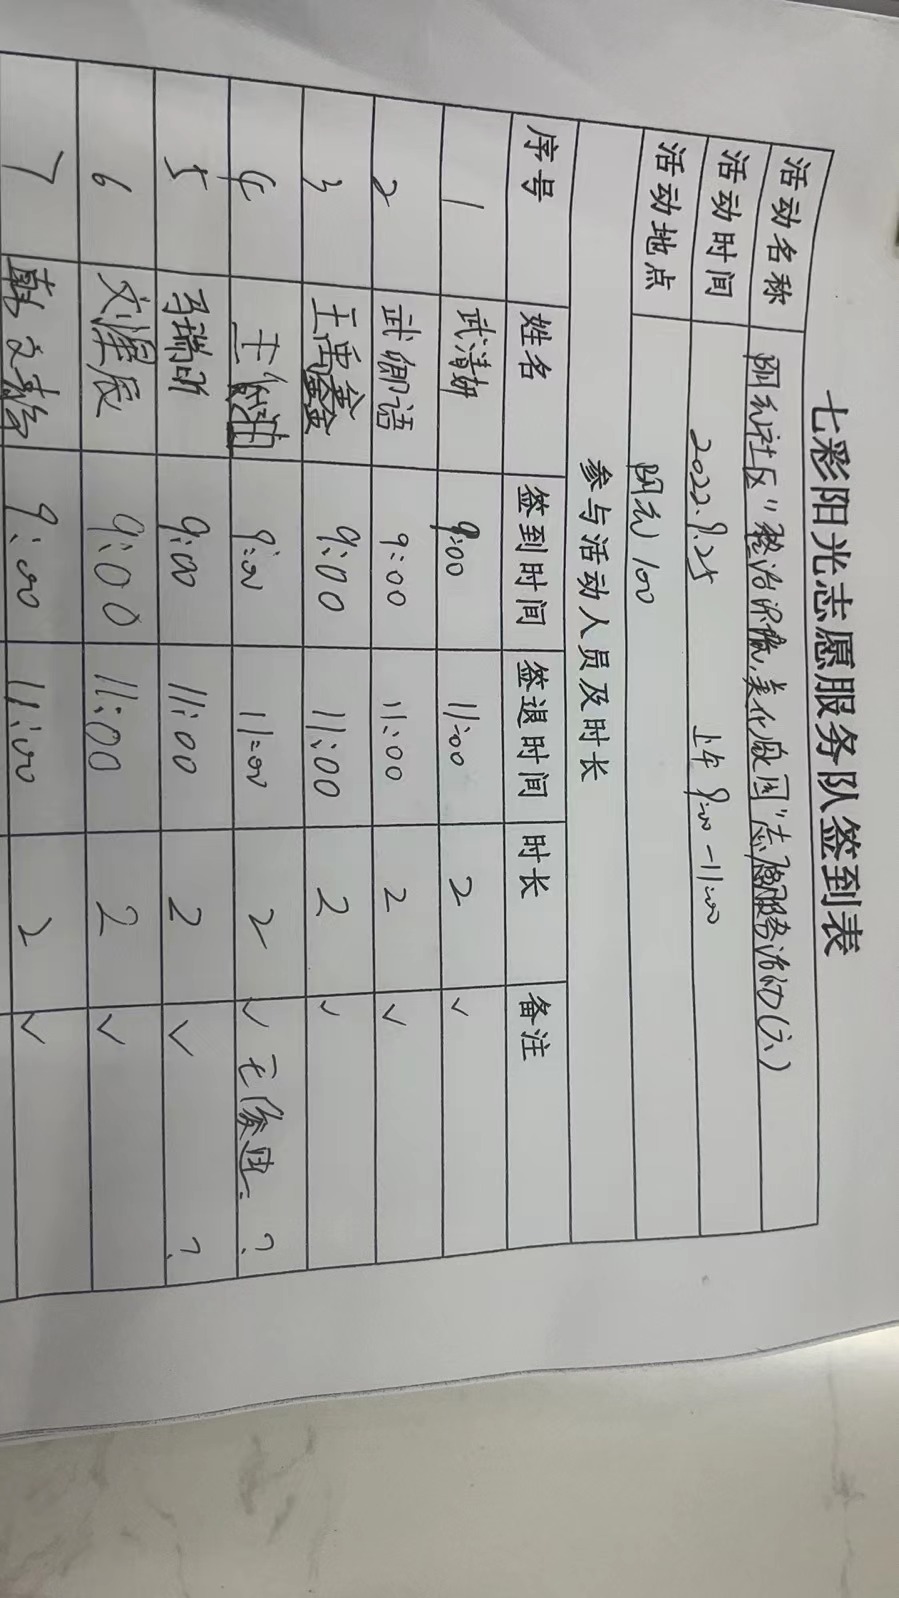 七彩阳光志愿服务队签到表
活动名称 阳光社区"整治环境,美化家园"志愿服务活动(六)
活动时间 2022.9.25 上午 9:00-11:00
活动地点 阳光100
参与活动人员及时长
序号 姓名 签到时间 签退时间 时长 备注
1 武清妍 9:00 11:00 2 ✓
2 武卿语 9:00 11:00 2 ✓
3 王禹鑫 9:00 11:00 2 ✓
4 王 9:00 11:00 2 ✓ ?
5 马瑞昕 9:00 11:00 2 ✓ ?
6 刘泽辰 9:00 11:00 2 ✓
7 韩文 9:00 11:00 2 ✓